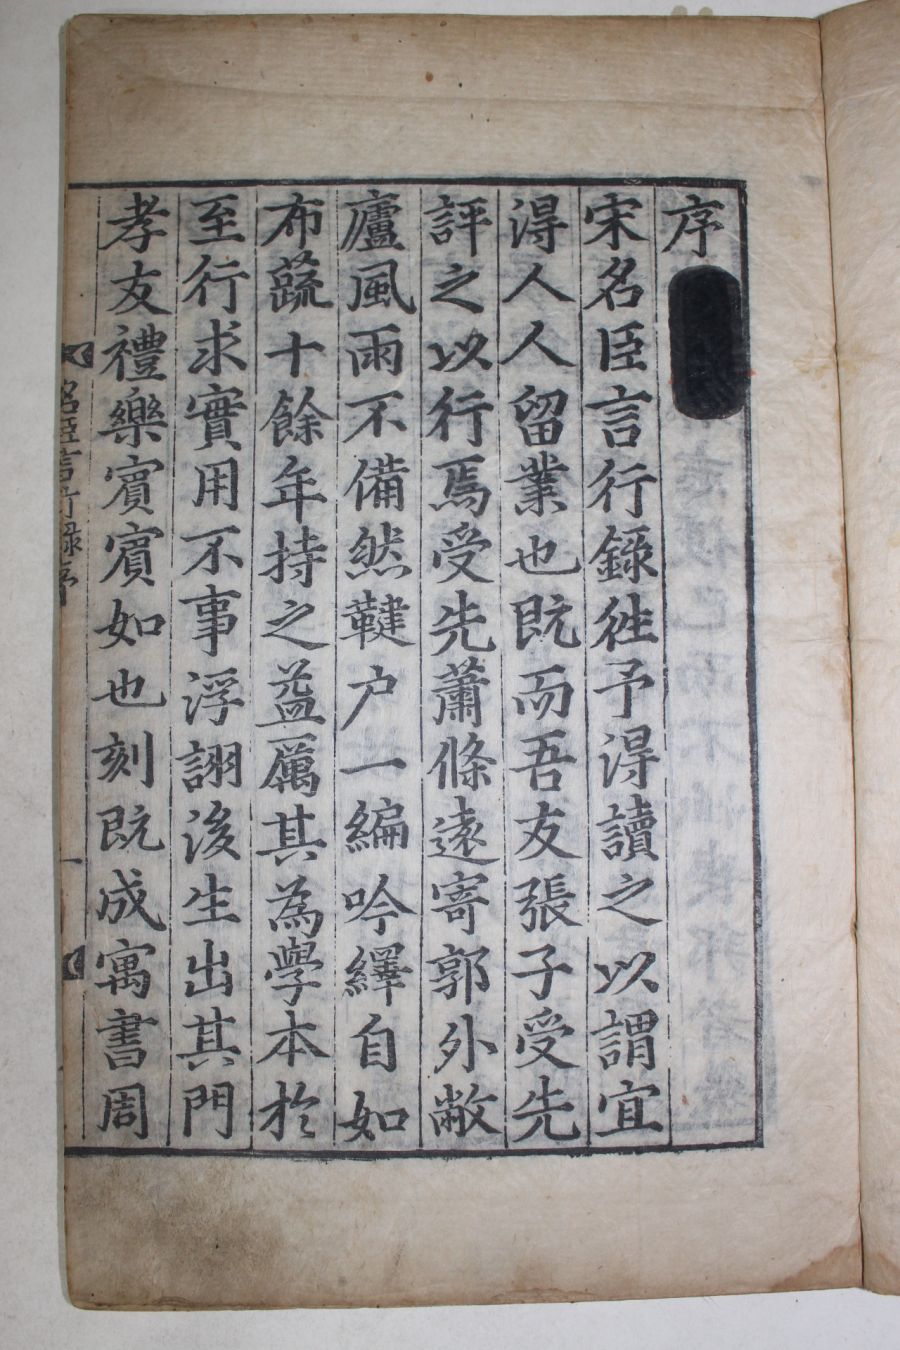 序
宋名臣言行錄徃予得讀之以謂宜
得人人留業也既而吾友張子受先
評之以行焉受先蕭條遠寄郭外敝
廬風雨不備然鞬户一編吟繹自如
布蔬十餘年持之益厲其為學本於
至行求實用不事浮詡後生出其門
孝友禮樂賓賓如也刻既成寓書周
名臣言行錄序
一